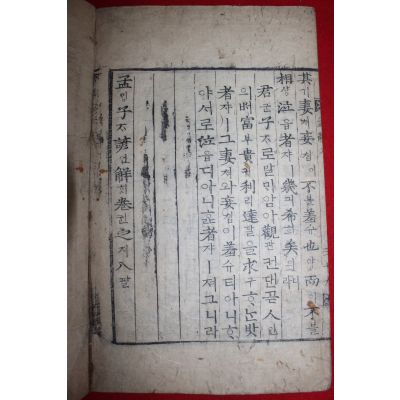 其기妻쳐妾쳡이不블羞슈也야而이不블
相샹泣읍者쟈ㅣ幾긔希희矣의니라
君군子ᄌᆞ로말ᄆᆡ암아觀관컨댄곧人인
의ᄡᅥ富부貴귀利리達달을求구ᄒᆞᄂᆞᆫ밧
者쟈ㅣ그妻쳐와妾쳡이羞슈티아니ᄒᆞ
야서로泣읍디아니ᄒᆞᆯ者쟈ㅣ져그니라
孟ᄆᆡᆼ子ᄌᆞ諺언解ᄒᆡ卷권之지八팔